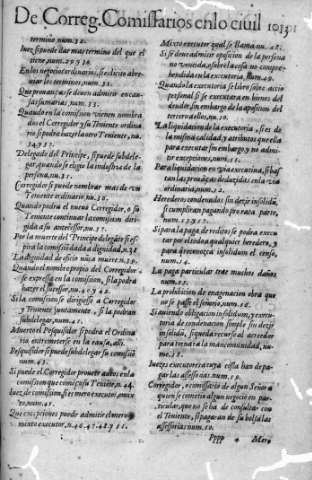 De Correg. Comissarios en lo ciuil
termino num. 32.
Iuez si puede dar mas termino del que el
tiene, num. 29. y 30.
En los negocios ordinarios, si es licito abre-
uiar los terminos, num. 31.
Que prouanças se deuen admitir en cau-
sas sumarias, num. 33.
Quando en la comission vienen nombra
dos el Corregidor y su Teniente ordina
rio
Delegado del Principe, si puede subdele-
gar, quando se eligio la industria de la
persona, nu. 35.
Corregidor si puede nombrar mas de vn
Teniente ordinario,
Quando podra el nueuo Corregidor, o su
Teniente continuar la comission diri-
gida a su antecessor, nu. 37.
Por la muerte del Principe delegante si es-
pira la comission dada a dignidad,
La dignidad de oficio nūca muere
Quando el nombre propio del Corregidor
se expressa en la comission, si la podra
hazer el sucessor, nu. 40. y 42.
Si la comission se dirigiesse a Corregidor
y Teniente juntamente, si la podran
subdelegar, num. 42.
Muerto el Pesquisidor si podra el Ordina
rio entremeterse en la causa, alli.
Pesquisidor si puede subdelegar su comissiō
num. 43.
Si puede el Corregidor proueer autos en la
comission que comiença su Teniente, n. 44.
Iuez de comission, si es mero executor, o mix
to, num. 45.
Que excepciones puede admitir el mero o
mixto executor, n. 46. 47. 48. y
Mixto executor qual se llama nu.
Si se deue admitir oposicion de la persona
no vencida, sobre la cosa no compre-
hendida en la executoria, num. 49.
Quando la executoria se libro sobre actio
personal si se executara en bienes del
deudor, sin embargo de oposicion del
tercero a ellos, n. 50.
La liquidacion de la executoria, si es de
la misma calidad, y atributos que ella
para executar sin embargo, y no admi-
tir excepciones,
Para liquidacion en via executiua, si bas-
tan las prouanças deduzidas en la via
ordinaria, num. 52.
Herederos condenados sin dezir insolidū,
si cumpliran pagando pro rata parte,
num. 53. y 57.
Si para la paga de reditos se podra execu-
tar por el todo a qualquier heredero, y
para reconozca insolidum el censo,
num. 54.
La paga particular trae muchos daños
num. 55.
La prohibicion de enagenacion obra que
no se passe el señorio, num.
Si auiendo obligacion insolidum, y executo-
ria de condenacion simple sin dezir
insolidū, si queda recurso al acreedor
para tornar a la mancomunidad, nu-
me.
Iuezes executores a cuya costa han de pa-
gar las assessorias, num. 59.
Corregidor, o comissario de algun Señor a
quien se cometio algun negocio en par-
ticular, que no se ha de consultar con
el Teniente, si pagara de su bolsa las
assessorias
Pppp
Mero